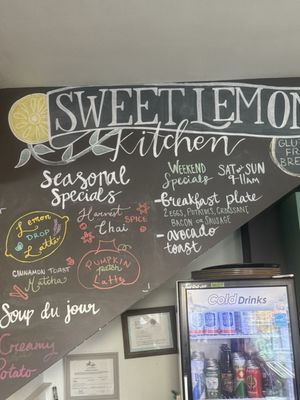 SWEET LEMON
Kitchen
GLUT
FREE
BREA
Seasonal
Specials
Weekend
Specials
SAT & SUN
9-11AM
Lemon
DROP
Latte
Harvest
Chai
SPICE
-Breakfast plate
2 EGGS, POTATOES, CROISSANT
BACON OR SAUSAGE
-avocado
toast
CINNAMON TOAST
Matcha
PUMPKIN
patch
Latte
Soup du jour
Creamy
Potato
Cold Drinks